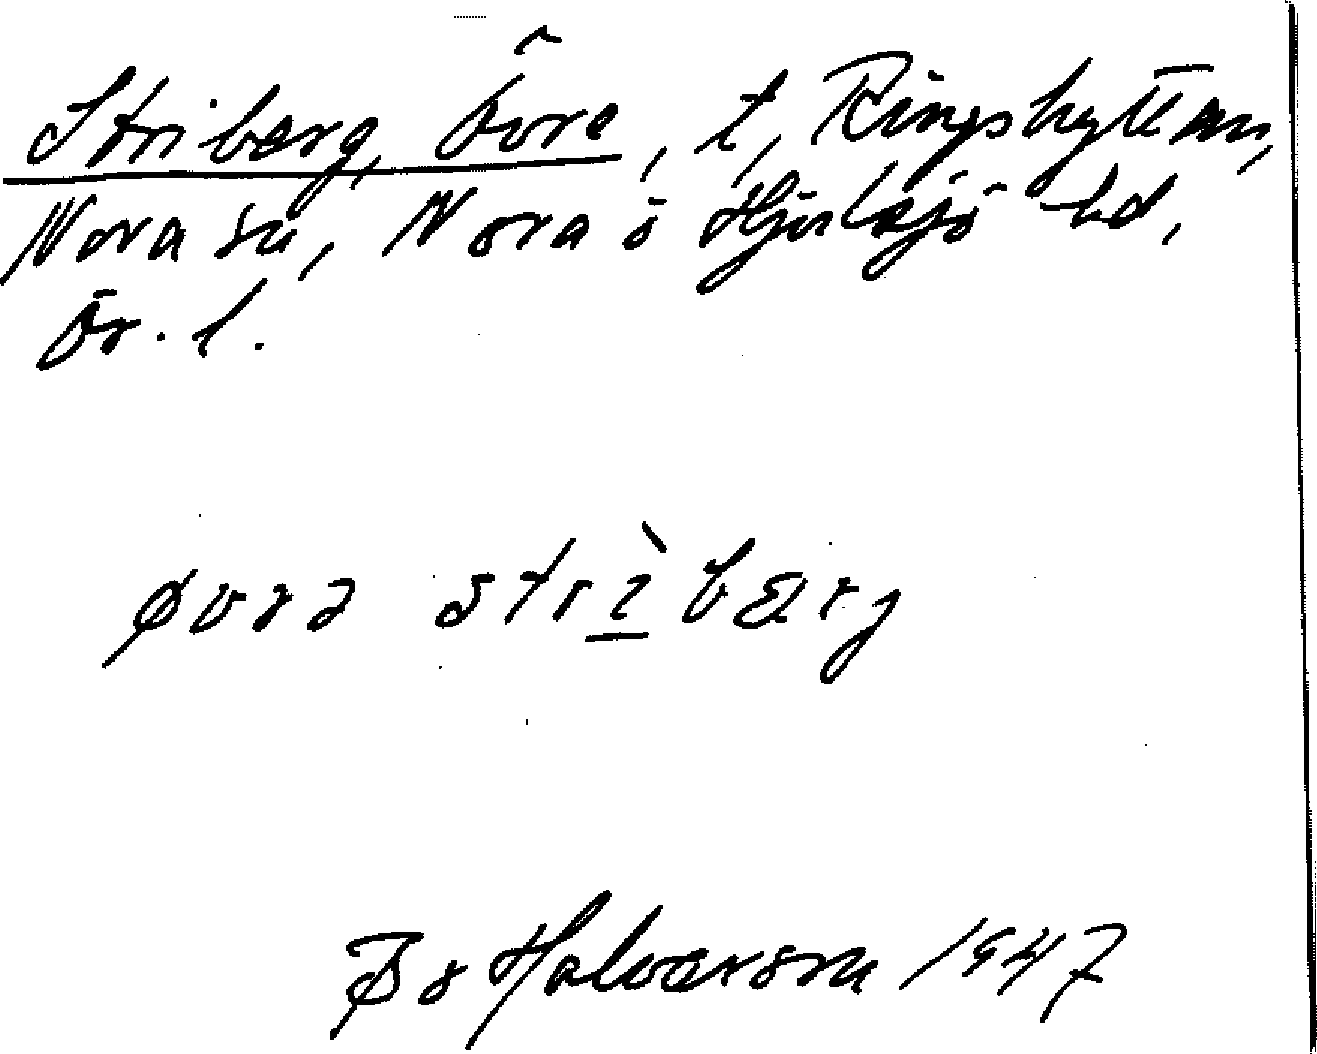 Striberg, Övre, t, Ringshyttan,
Nora sn, Nora o Hjulsjö hd,
Ör. l.
øvrə strìbærj
Bo Halvarson 1947